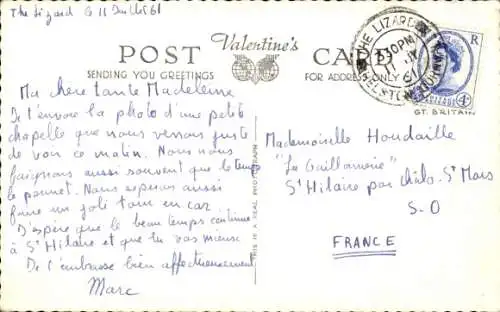 The Lizard le 11 Juillet 61
POST Valentine's CARD
SENDING YOU GREETINGS FOR ADDRESS ONLY
THE LIZARD
3 30PM
11 JY
61
HELSTON CORNWALL
GT. BRITAIN
Ma chère tante Madeleine
Je t'envoie la photo d'une petite
chapelle que nous venons juste
de voir ce matin. Nous nous
baignons aussi souvent que le temps
le permet. Nous espérons aussi
faire un joli tour en car
J'espère que le beau temps continue
à St Hilaire et que tu vas mieux
Je t'embrasse bien affectueusement
Marc
THIS IS A REAL PHOTOGRAPH
Mademoiselle Houdaille
"La Gaillonnerie"
St Hilaire par Châlo-St Mars
S.O
FRANCE